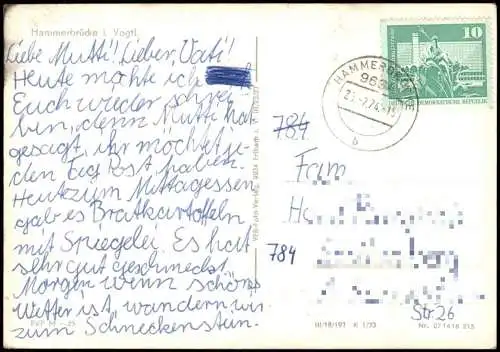 Hammerbrücke i. Vogtl.
Liebe Mutti! Lieber Vati!
Heute möhte ich
Euch wieder schrei
ben, denn Mutti hat
gesagt, ihr möchtet je-
den Tag Post haben.
Heute zum Mittagessen
gab es Bratkartoffeln
mit Spiegelei. Es hat
sehr gut geschmeckt
Morgen wenn schönes
Wetter ist, wandern wir
zum Schneckenstein.
10
DEMOKRATISCHE REPUBLIK
HAMMERBRÜCKE
b
784
Fam
784
Str. 26
III/18/197 K 1/73
Nr. 071418 215